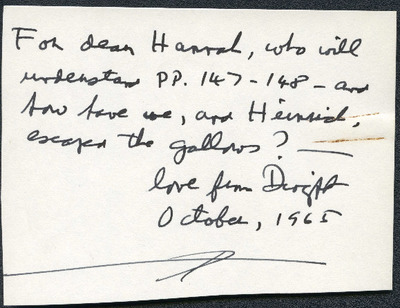 For dear Hannah, who will
understand PP. 147-148 - and
how have we, and Heinrich,
escaped the gallows? —
love from Dwight
October, 1965